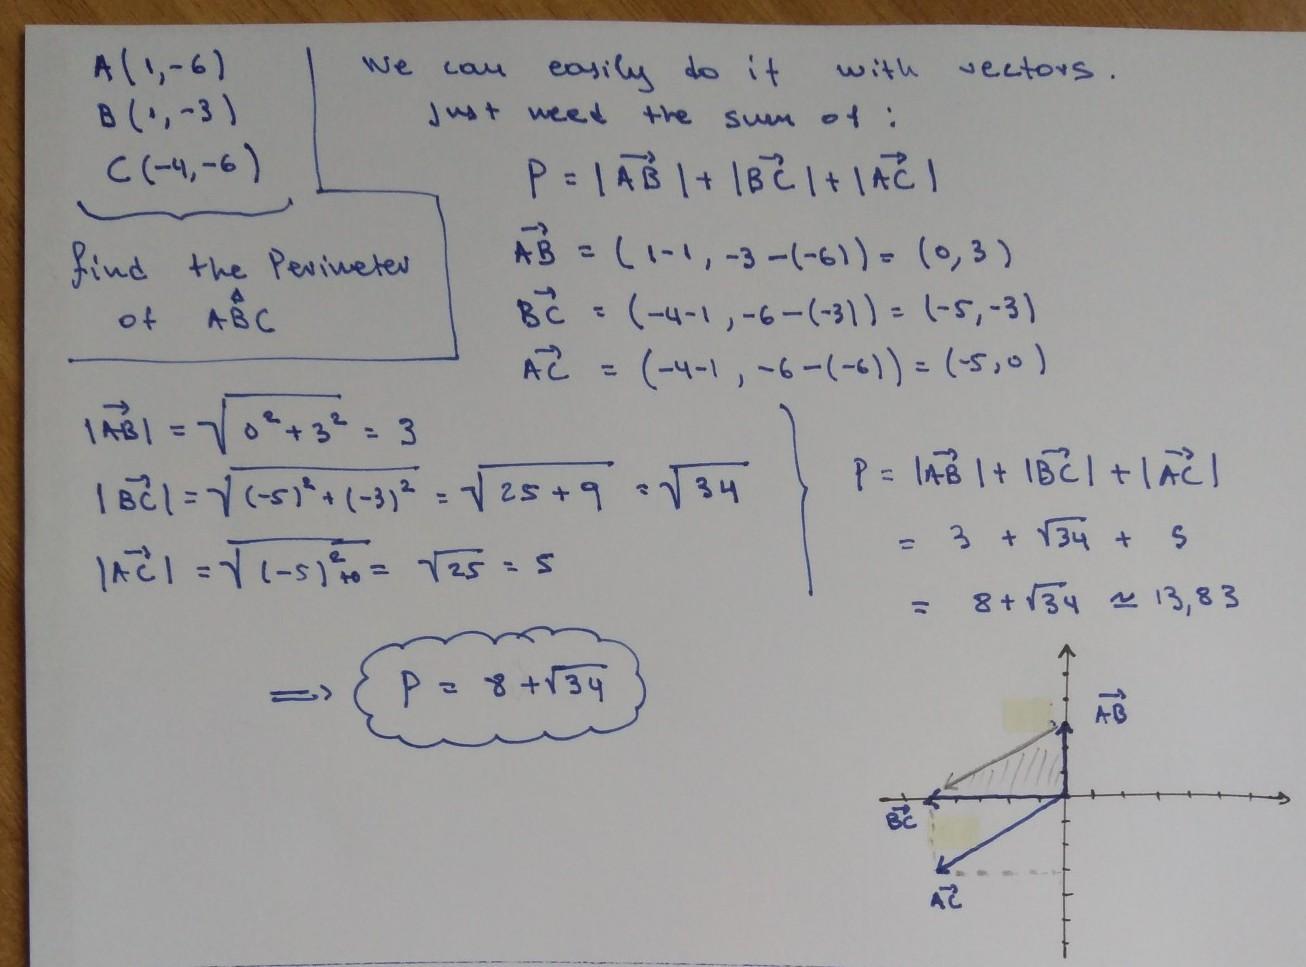 A(1,-6)
B(1,-3)
C(-4,-6)
find the Perimeter
of AB̂C
We can easily do it with vectors.
Just need the sum of:
P = |AB⃗| + |BC⃗| + |AC⃗|
AB⃗ = (1-1, -3-(-6)) = (0,3)
BC⃗ = (-4-1, -6-(-3)) = (-5,-3)
AC⃗ = (-4-1, -6-(-6)) = (-5,0)
|AB⃗| = √(0²+3²) = 3
|BC⃗| = √((-5)²+(-3)²) = √(25+9) = √34
|AC⃗| = √((-5)²+0) = √25 = 5
P = |AB⃗| + |BC⃗| + |AC⃗|
= 3 + √34 + 5
= 8+√34 ≃ 13,83
⟹ P = 8+√34
AB⃗
BC⃗
AC⃗